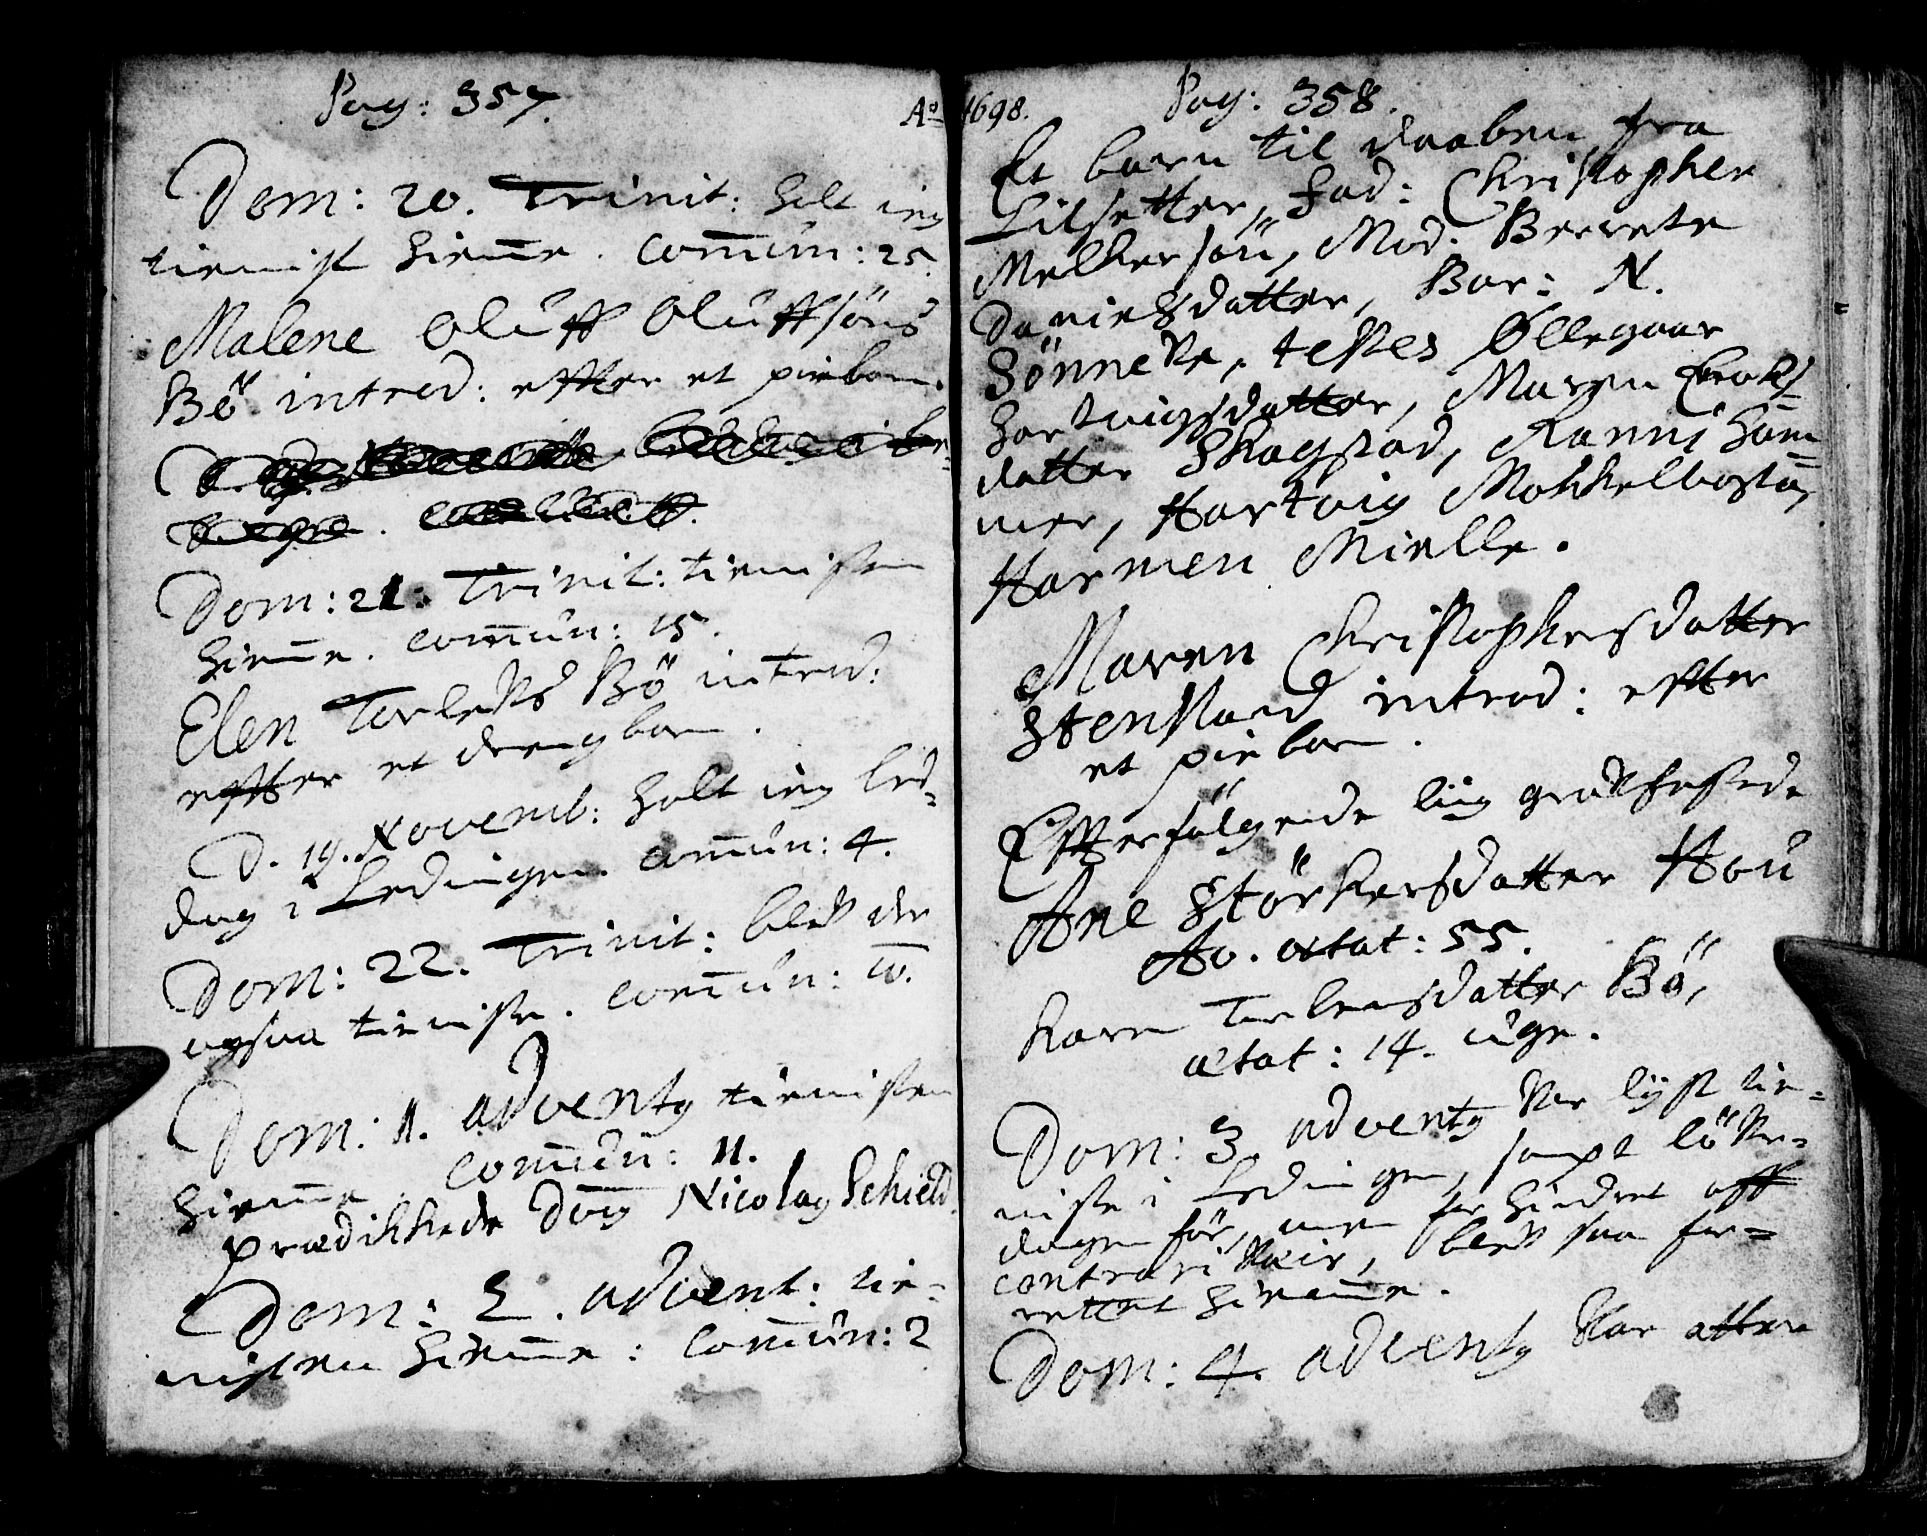 Pag: 357.
Dom: 20. Trinit: holt ieg
tienist hieme. Commun: 25.
Malene Oluff Oluffsöns
Bö introd: effter et piebarn.
Dom: 21. Trinit: tienisten
hieme. Commun: 15.
Elen Torlefs Bö introd:
effter et drengbarn.
D. 19. Novemb: holt ieg bed-
dag i Lødingen. Commun: 4.
Dom: 22. Trinit: bleff der
ogsaa tieniste. Commun: 10.
Dom: 1. Adventq tienisten
hieme. Commun: 11.
prædikkede Dom Nicolaq Schield.
Dom: 2. Advent: tie-
nisten hieme: Commun: 2
Ao 1698.
Pag: 358.
Et barn til daaben fra
Lilsetter, Fad: Christopher
Melkersön, Mod: Berrete
Danielsdatter, Bar: N.
Sönneke, testes Ollegaar
Hartvigsdatter, Maren Enoks-
datter Skagstad, Ranni Ham-
mer, Hartvig Mokkelbostad,
Harmen Mielle.
Maren Christophersdatter
Stenstand introd: effter
et piebarn.
Effterfölgende liig graffestede
Ane Störkersdatter Hou
Ao. ætat: 55.
Karen Torbensdatter Bö,
ætat: 14. uger.
Dom: 3 Adventq var lyst tie-
niste i Lødingen, sampt löver-
dagen för, men forhindret aff
contrari veir, bleff saa for-
rettet hieme.
Dom: 4. Adventq var atter